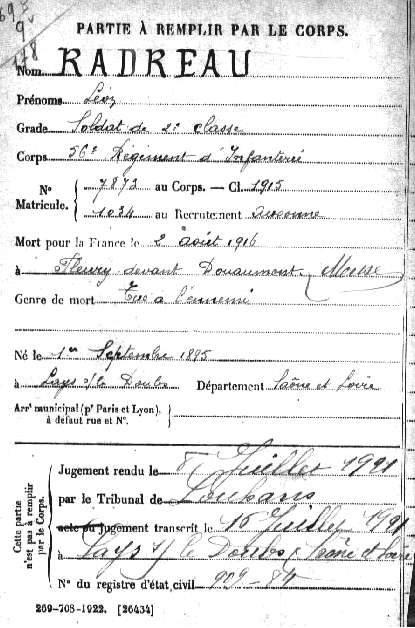 PARTIE À REMPLIR PAR LE CORPS.
Nom RADREAU
Prénoms Léon
Grade Soldat de 2e classe
Corps 56e Régiment d'Infanterie
No Matricule. 7873 au Corps. — Cl. 1915
1034 au Recrutement Auxonne
Mort pour la France le 2 août 1916
à Fleury devant Douaumont (Meuse
Genre de mort Tué à l'ennemi
Né le 1er Septembre 1895
à Lays s/le Doubs Département Saône et Loire
Arrt municipal (pr Paris et Lyon),
à défaut rue et No.
Cette partie
n'est pas à remplir
par le Corps.
Jugement rendu le 8 Juillet 1921
par le Tribunal de Louhans
acte ou jugement transcrit le 15 Juillet 1921
à Lays s/ le Doubs (Saône et Loire
No du registre d'état civil 909-84
269-708-1922. [26434]